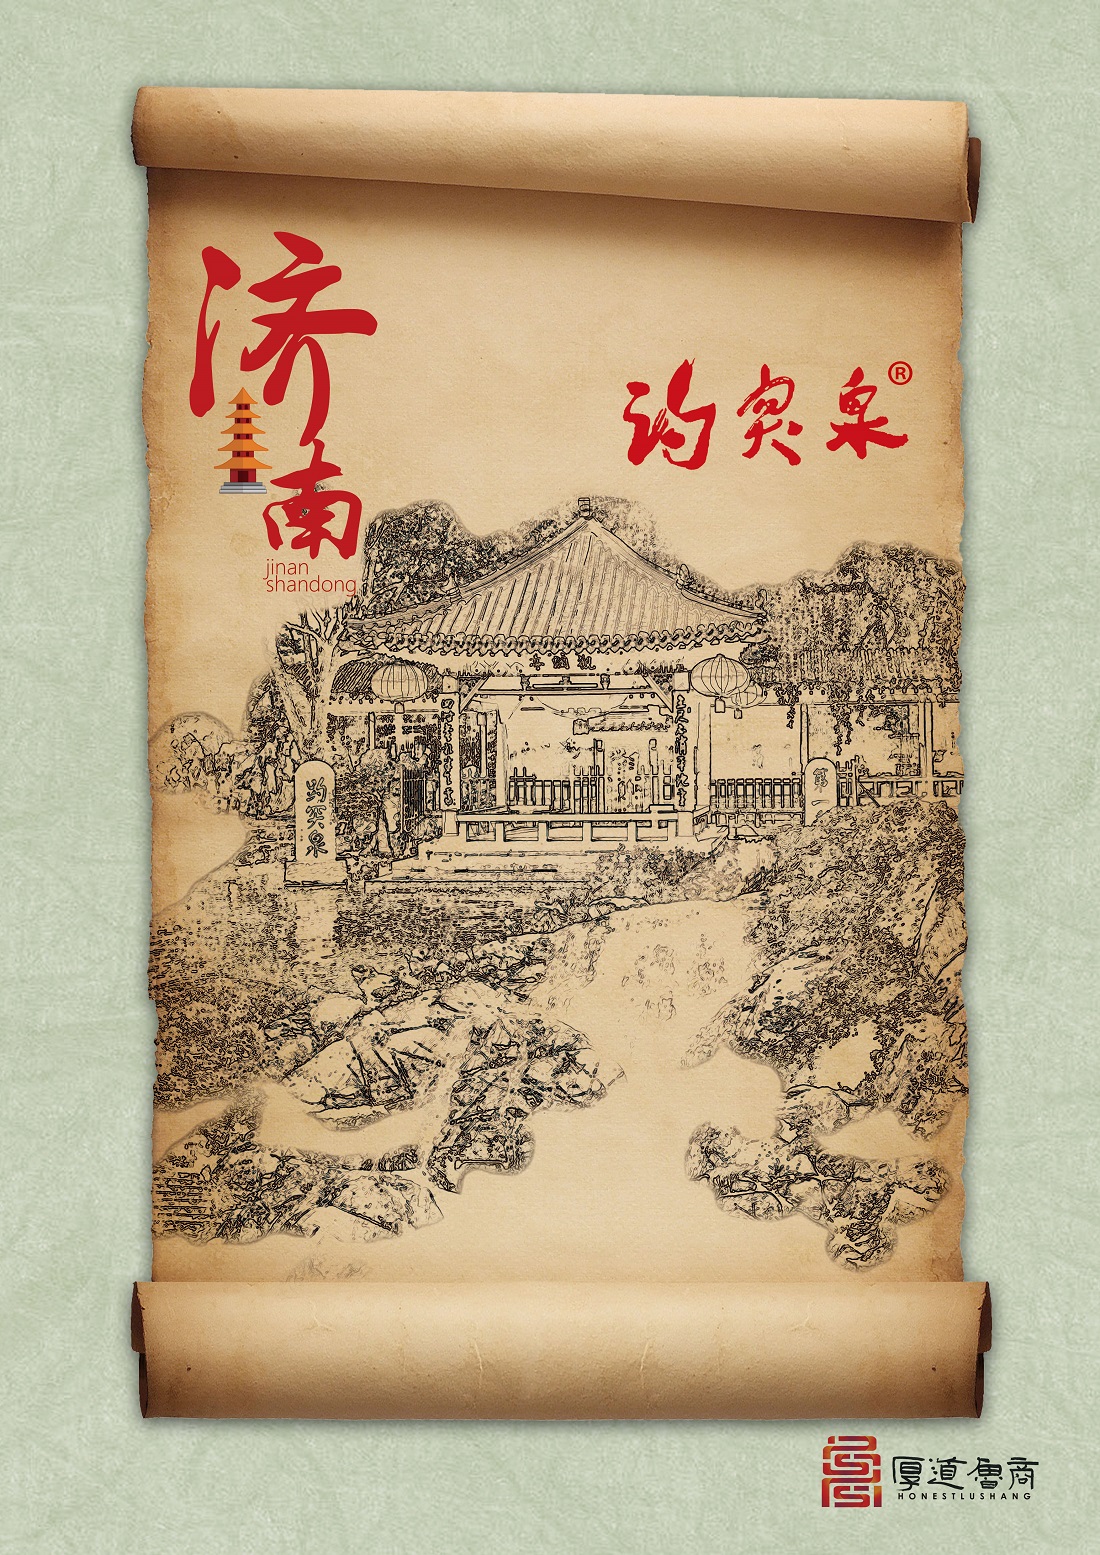 济南
jinan
shandong
趵突泉®
觀瀾亭
趵突泉
第一
厚道魯商
HONESTLUSHANG